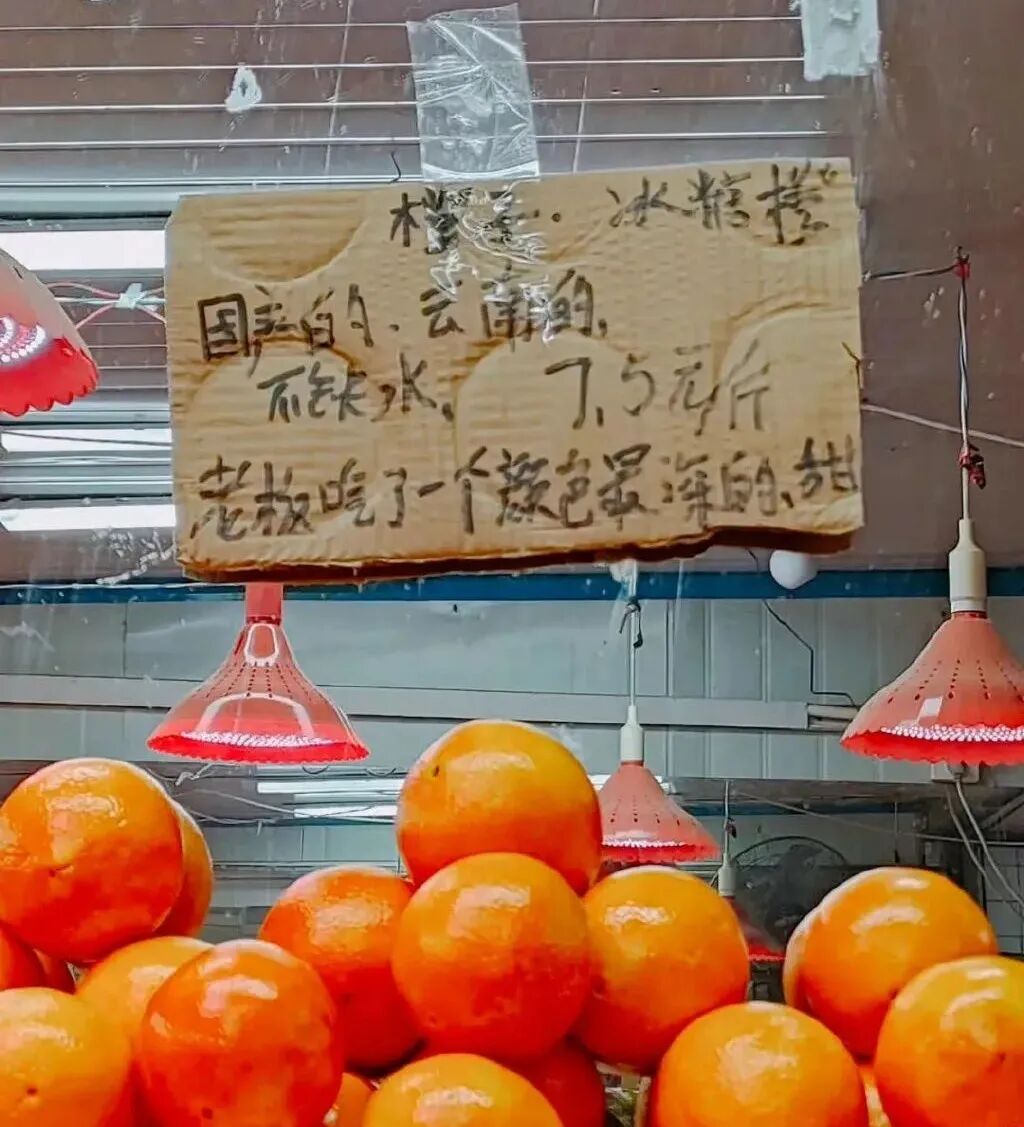 橙子. 冰糖橙
国产的、云南的,
不缺水, 7.5元/斤
老板吃了一个颜色最深的、甜